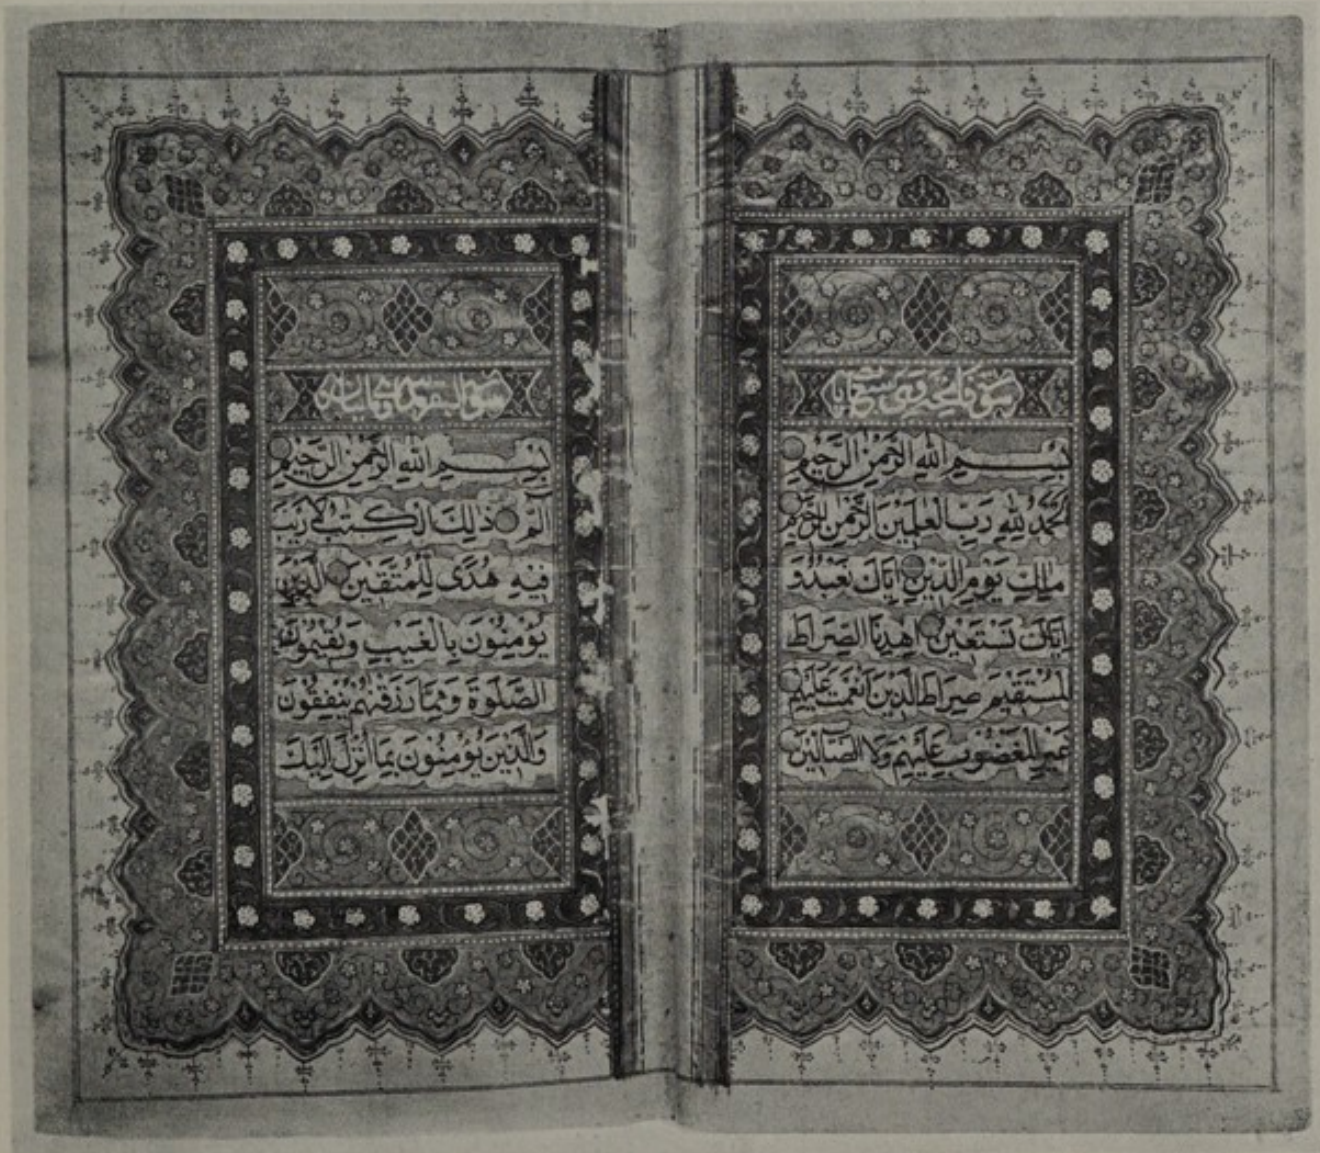 سورة فاتحة وهي سبع آيات
بِسْمِ اللهِ الرَّحْمٰنِ الرَّحِيْمِ
اَلْحَمْدُ لِلّٰهِ رَبِّ الْعٰلَمِيْنَ الرَّحْمٰنِ الرَّحِيْمِ
مَالِكِ يَوْمِ الدِّيْنِ اِيَّاكَ نَعْبُدُ وَ
اِيَّاكَ نَسْتَعِيْنُ اِهْدِنَا الصِّرَاطَ
الْمُسْتَقِيْمَ صِرَاطَ الَّذِيْنَ اَنْعَمْتَ عَلَيْهِمْ
غَيْرِ الْمَغْضُوْبِ عَلَيْهِمْ وَلَا الضَّآلِّيْنَ
سورة البقرة
بِسْمِ اللهِ الرَّحْمٰنِ الرَّحِيْمِ
الٓمٓ ذٰلِكَ الْكِتٰبُ لَا رَيْبَ
فِيْهِ هُدًى لِلْمُتَّقِيْنَ الَّذِيْنَ
يُؤْمِنُوْنَ بِالْغَيْبِ وَيُقِيْمُوْنَ
الصَّلٰوةَ وَمِمَّا رَزَقْنٰهُمْ يُنْفِقُوْنَ
وَالَّذِيْنَ يُؤْمِنُوْنَ بِمَا اُنْزِلَ اِلَيْكَ